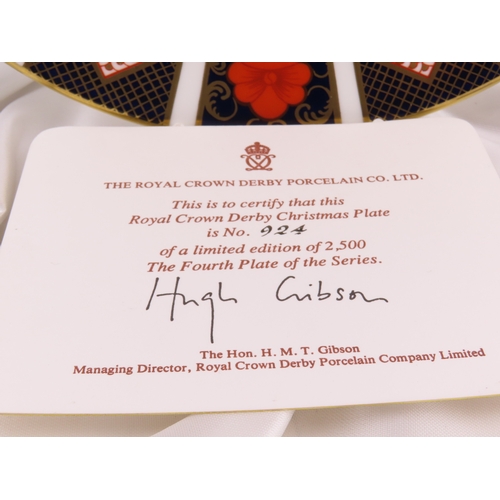 THE ROYAL CROWN DERBY PORCELAIN CO. LTD.
This is to certify that this
Royal Crown Derby Christmas Plate
is No. 924
of a limited edition of 2,500
The Fourth Plate of the Series.
Hugh Gibson
The Hon. H. M. T. Gibson
Managing Director, Royal Crown Derby Porcelain Company Limited